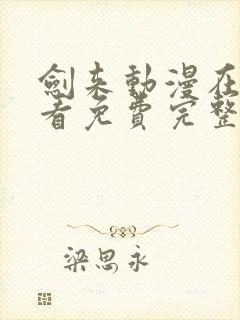 劍来動漫在
看免費完整
梁思永